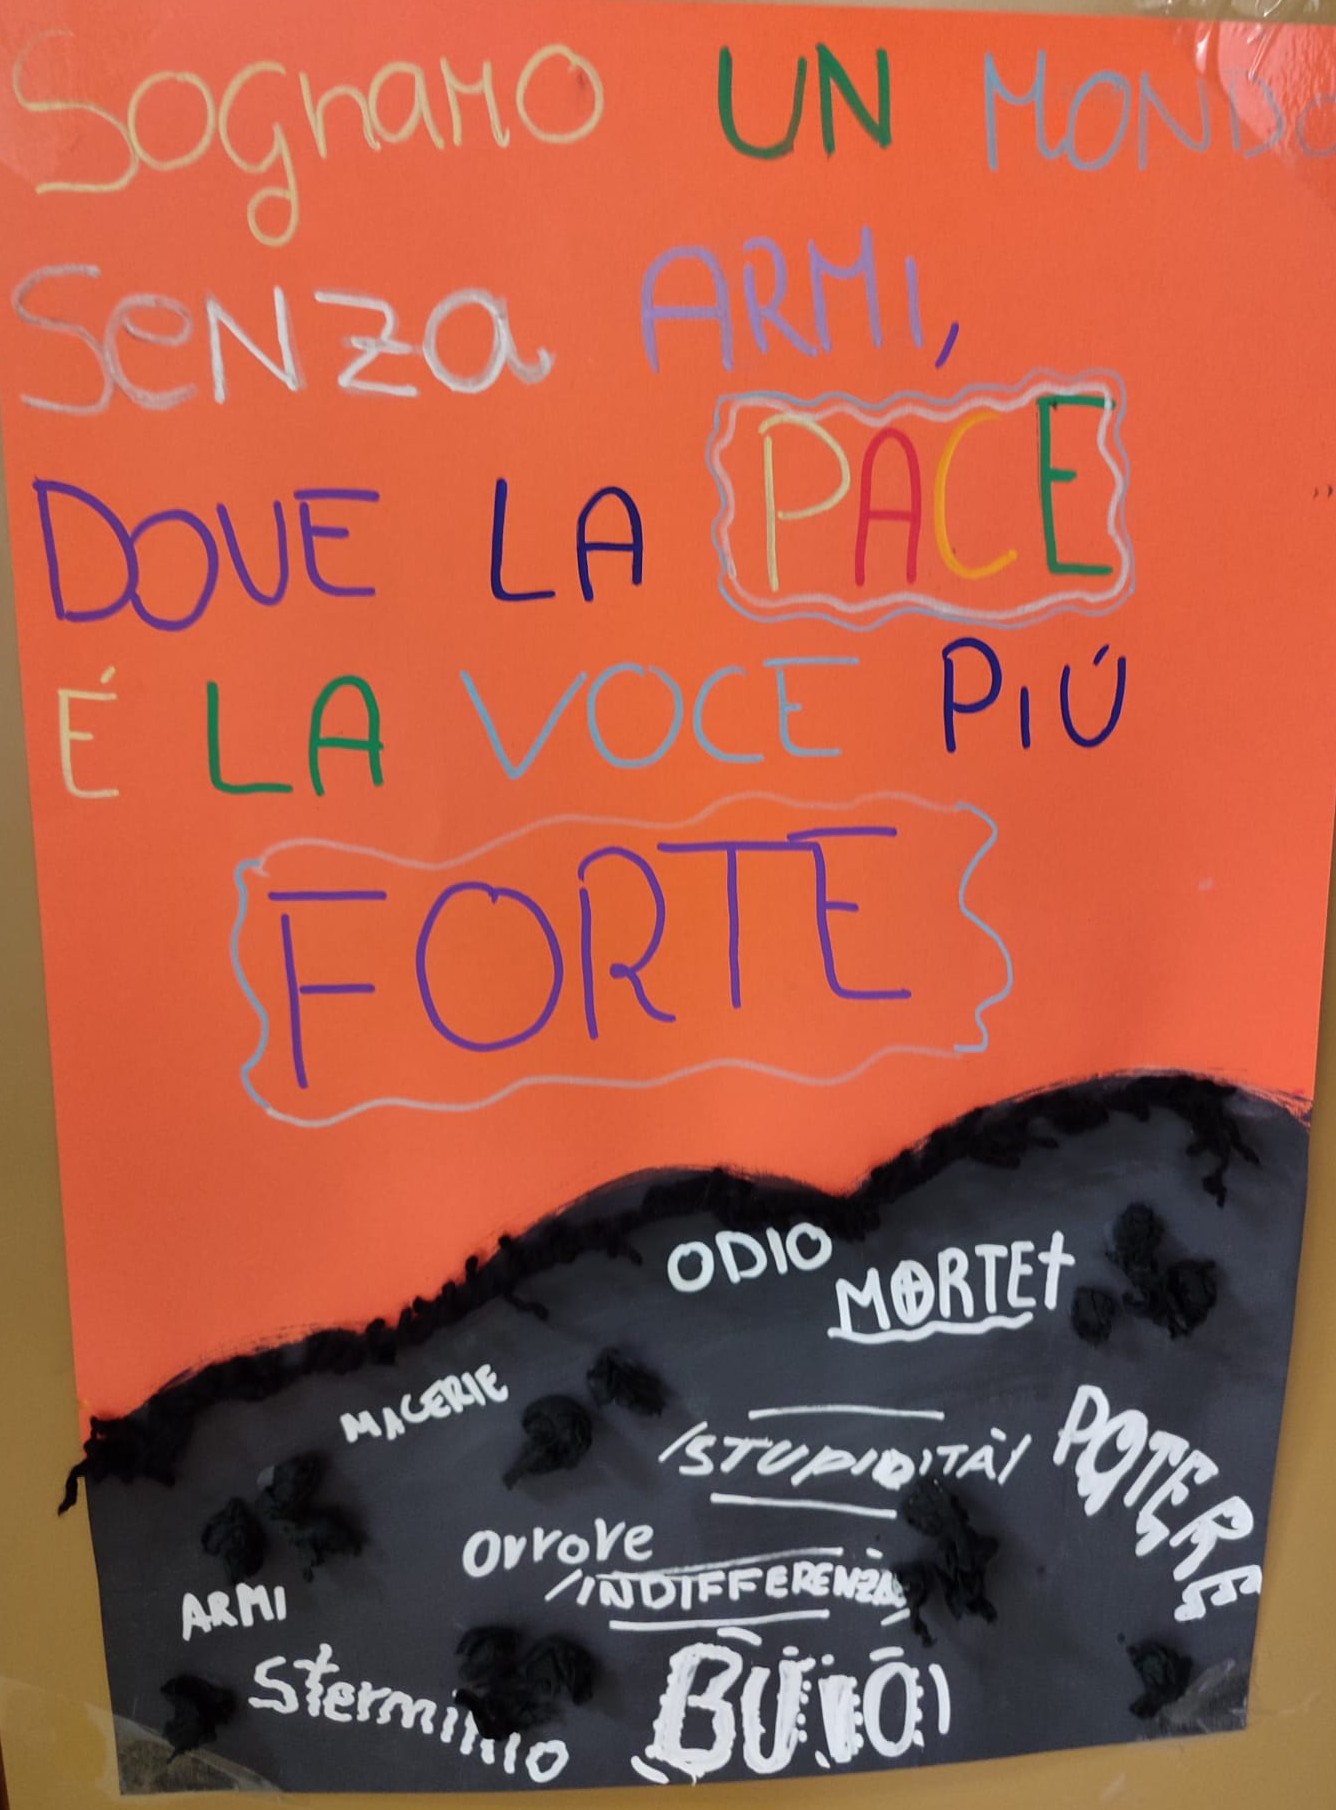 SOGNAMO UN MONDO
SENZA ARMI,
DOVE LA PACE
É LA VOCE PIÚ
FORTE
ODIO
MORTE
MACERIE
STUPIDITÀ
POTERE
Orrore
INDIFFERENZA
ARMI
Sterminio
BUIO